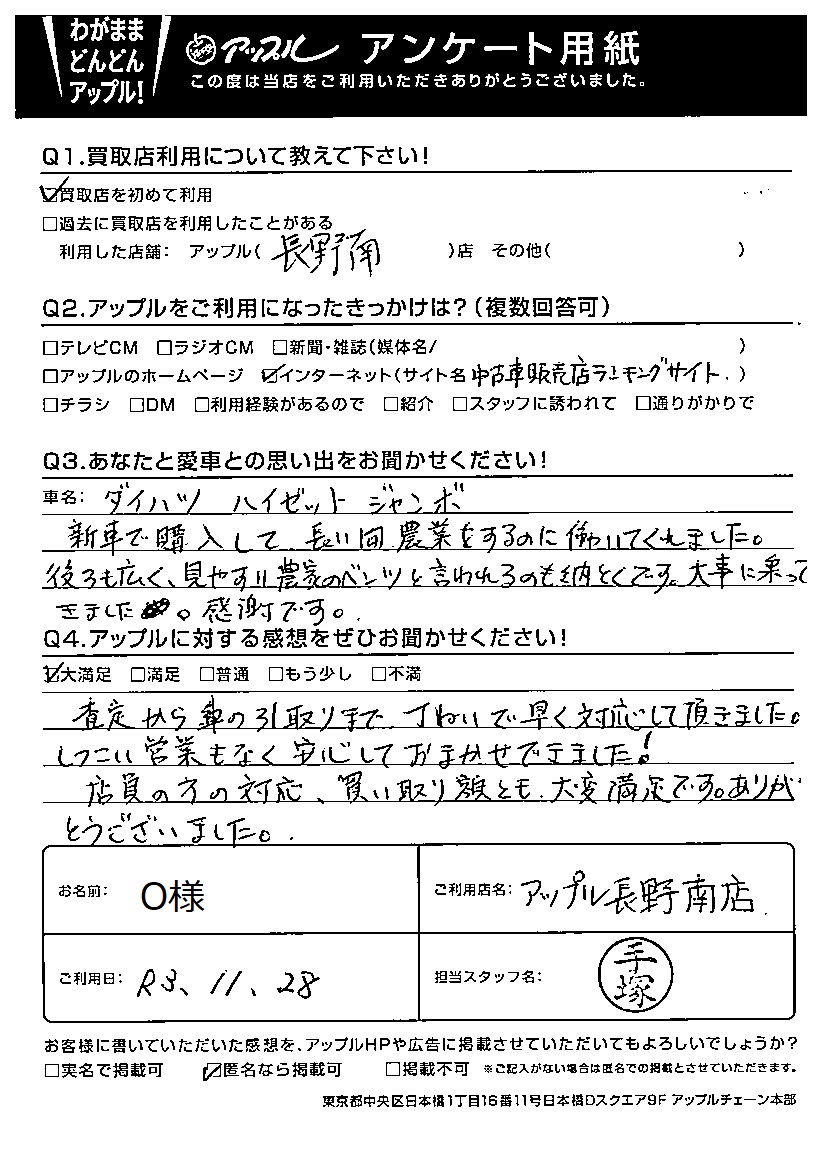 わがまま
どんどん
アップル!
アップル アンケート用紙
この度は当店をご利用いただきありがとうございました。
Q1.買取店利用について教えて下さい!
☑買取店を初めて利用
□過去に買取店を利用したことがある
利用した店舗: アップル( 長野南 )店 その他( )
Q2.アップルをご利用になったきっかけは?(複数回答可)
□テレビCM □ラジオCM □新聞・雑誌(媒体名/ )
□アップルのホームページ ☑インターネット(サイト名 中古車販売店ランキングサイト. )
□チラシ □DM □利用経験があるので □紹介 □スタッフに誘われて □通りがかりで
Q3.あなたと愛車との思い出をお聞かせください!
車名: ダイハツ ハイゼット ジャンボ
新車で購入して 長い間 農業をするのに働いてくれました。
後ろも広く、見やすい農家のベンツと言われるのも納とくです。大事に乗って
きました。感謝です。
Q4.アップルに対する感想をぜひお聞かせください!
☑大満足 □満足 □普通 □もう少し □不満
査定から車の引取りまで、丁ねいで早く対応して頂きました。
しつこい営業もなく安心しておまかせできました!
店員の方の対応、買い取り額とも、大変満足です。ありが
とうございました。
お名前: O様
ご利用店名: アップル長野南店
ご利用日: R3、11、28
担当スタッフ名: 手塚
お客様に書いていただいた感想を、アップルHPや広告に掲載させていただいてもよろしいでしょうか?
□実名で掲載可 ☑匿名なら掲載可 □掲載不可 ※ご記入がない場合は匿名での掲載とさせていただきます。
東京都中央区日本橋1丁目16番11号日本橋Dスクエア9F アップルチェーン本部